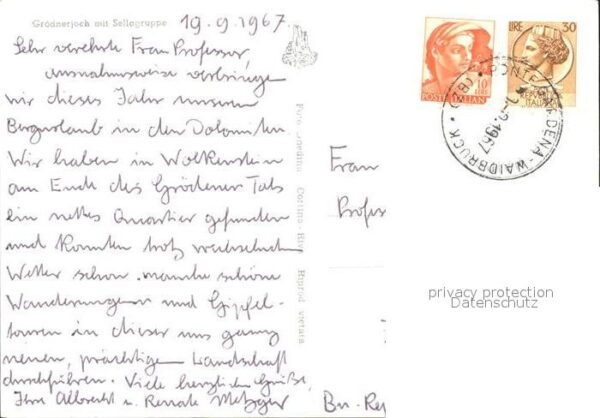 Grödnerjoch mit Sellagruppe
19.9.1967
Sehr verehrte Frau Professor,
ausnahmsweise verbringen
wir dieses Jahr unseren
Bergurlaub in den Dolomiten.
Wir haben in Wolkenstein
am Ende des Grödener Tals
ein nettes Quartier gefunden
und konnten trotz wechselnder
Wetter schon manche schöne
Wanderungen und Gipfel-
touren in dieser uns ganz
neuen, prächtigen Landschaft
durchführen. Viele herzliche Grüße,
Ihre Albrecht u. Renate Metzger
Foto Cortina - Riprod. vietata
Frau
Profess
Bu-Re
10
LIRE
POSTE ITALIANE
LIRE 30
ITALIA
PONTE GARDENA - WAIDBRUCK
9.1967
privacy protection
Datenschutz